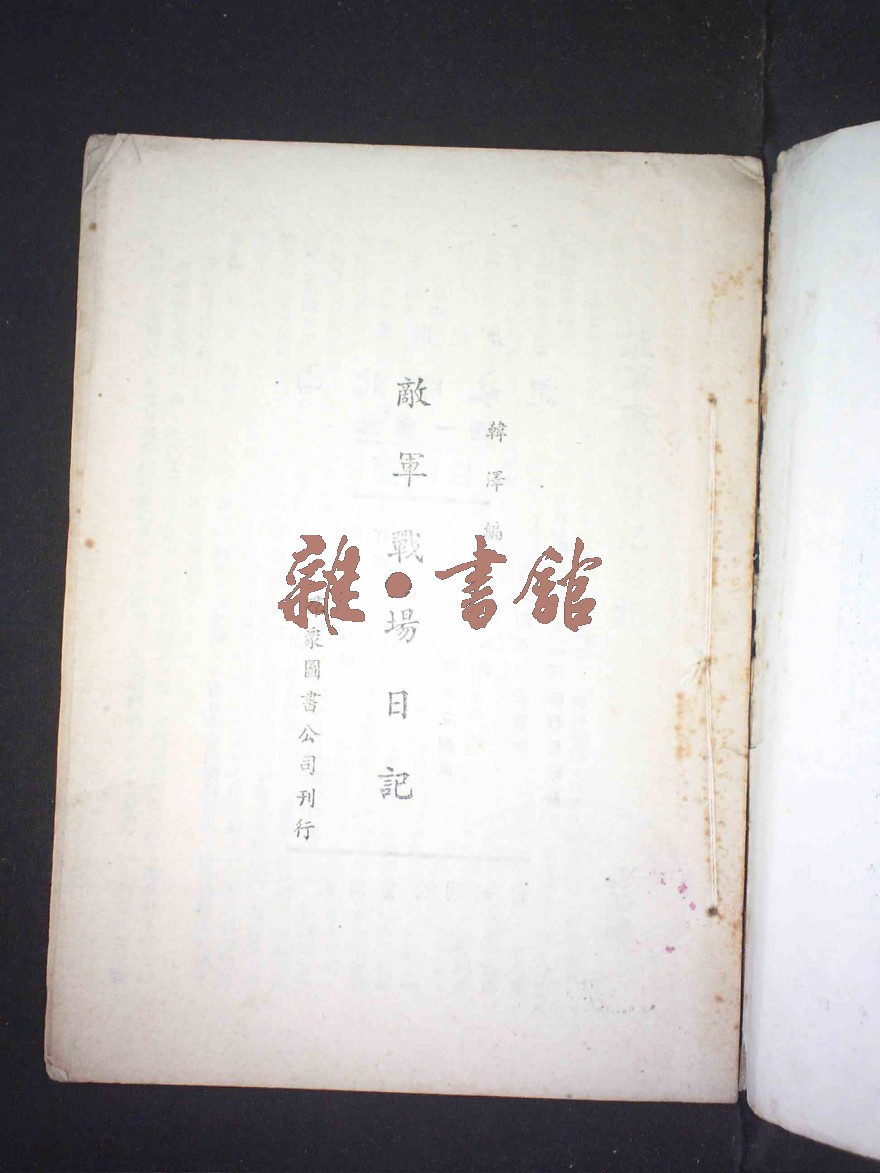 韓澤編
敵軍戰場日記
衆圖書公司刊行
雜·書館